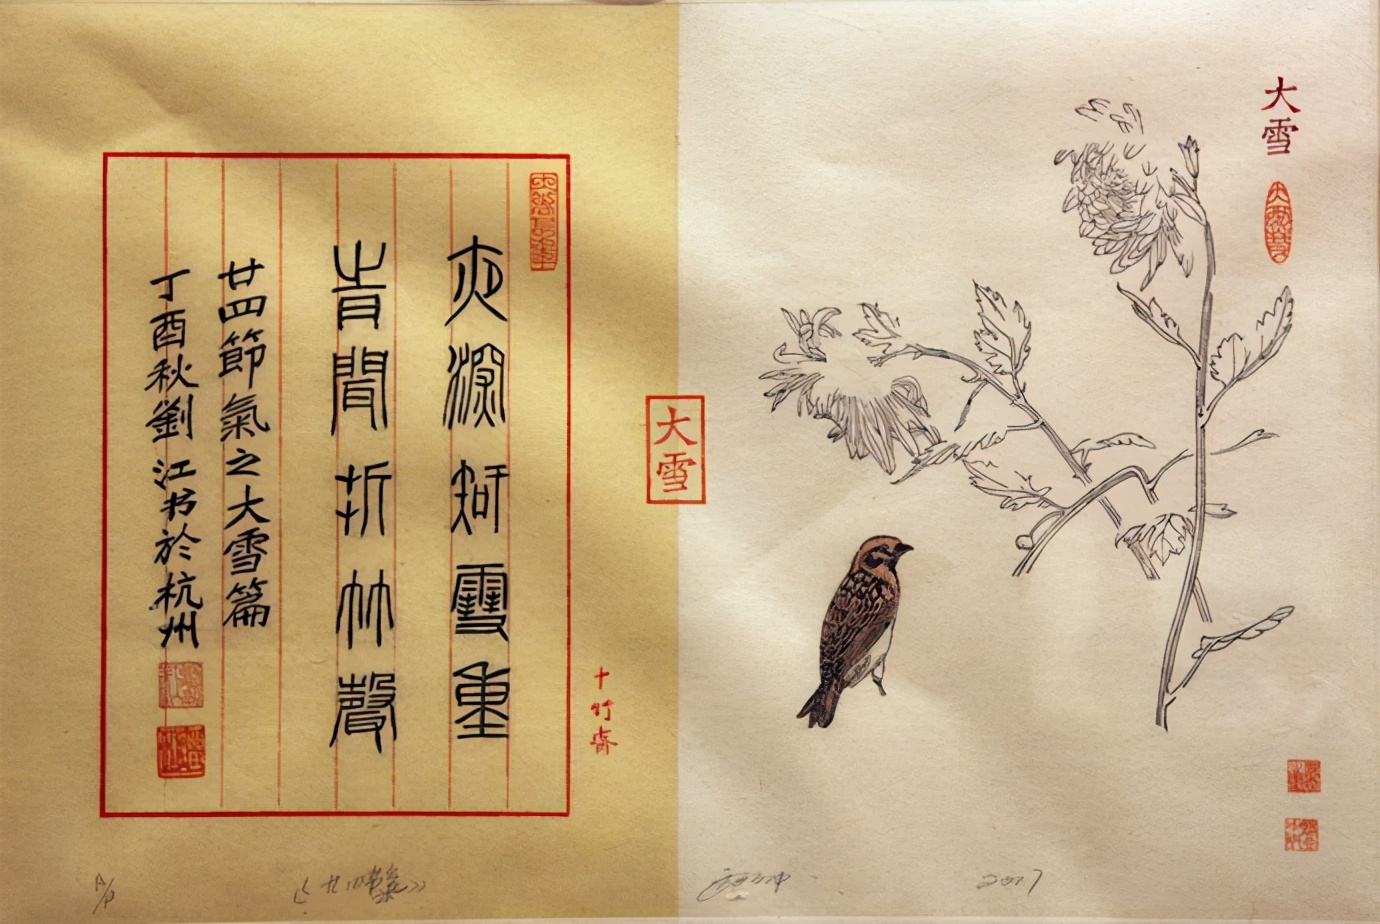 大雪
大雪
夜深知雪重
旹聞折竹聲
廿四節氣之大雪篇
丁酉秋劉江书於杭州
十竹齋
A/P
2017